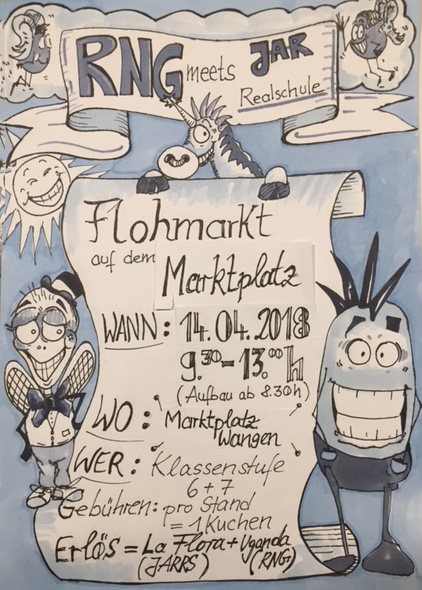 RNG meets JAR
Realschule
Flohmarkt
auf dem
Marktplatz
WANN: 14.04.2018
9.30-13.00h
(Aufbau ab 8.30h)
WO: Marktplatz
Wangen
WER: Klassenstufe
6+7
Gebühren: pro Stand
= 1 Kuchen
Erlös = La Flora + Uganda
(JARRS) (RNG)